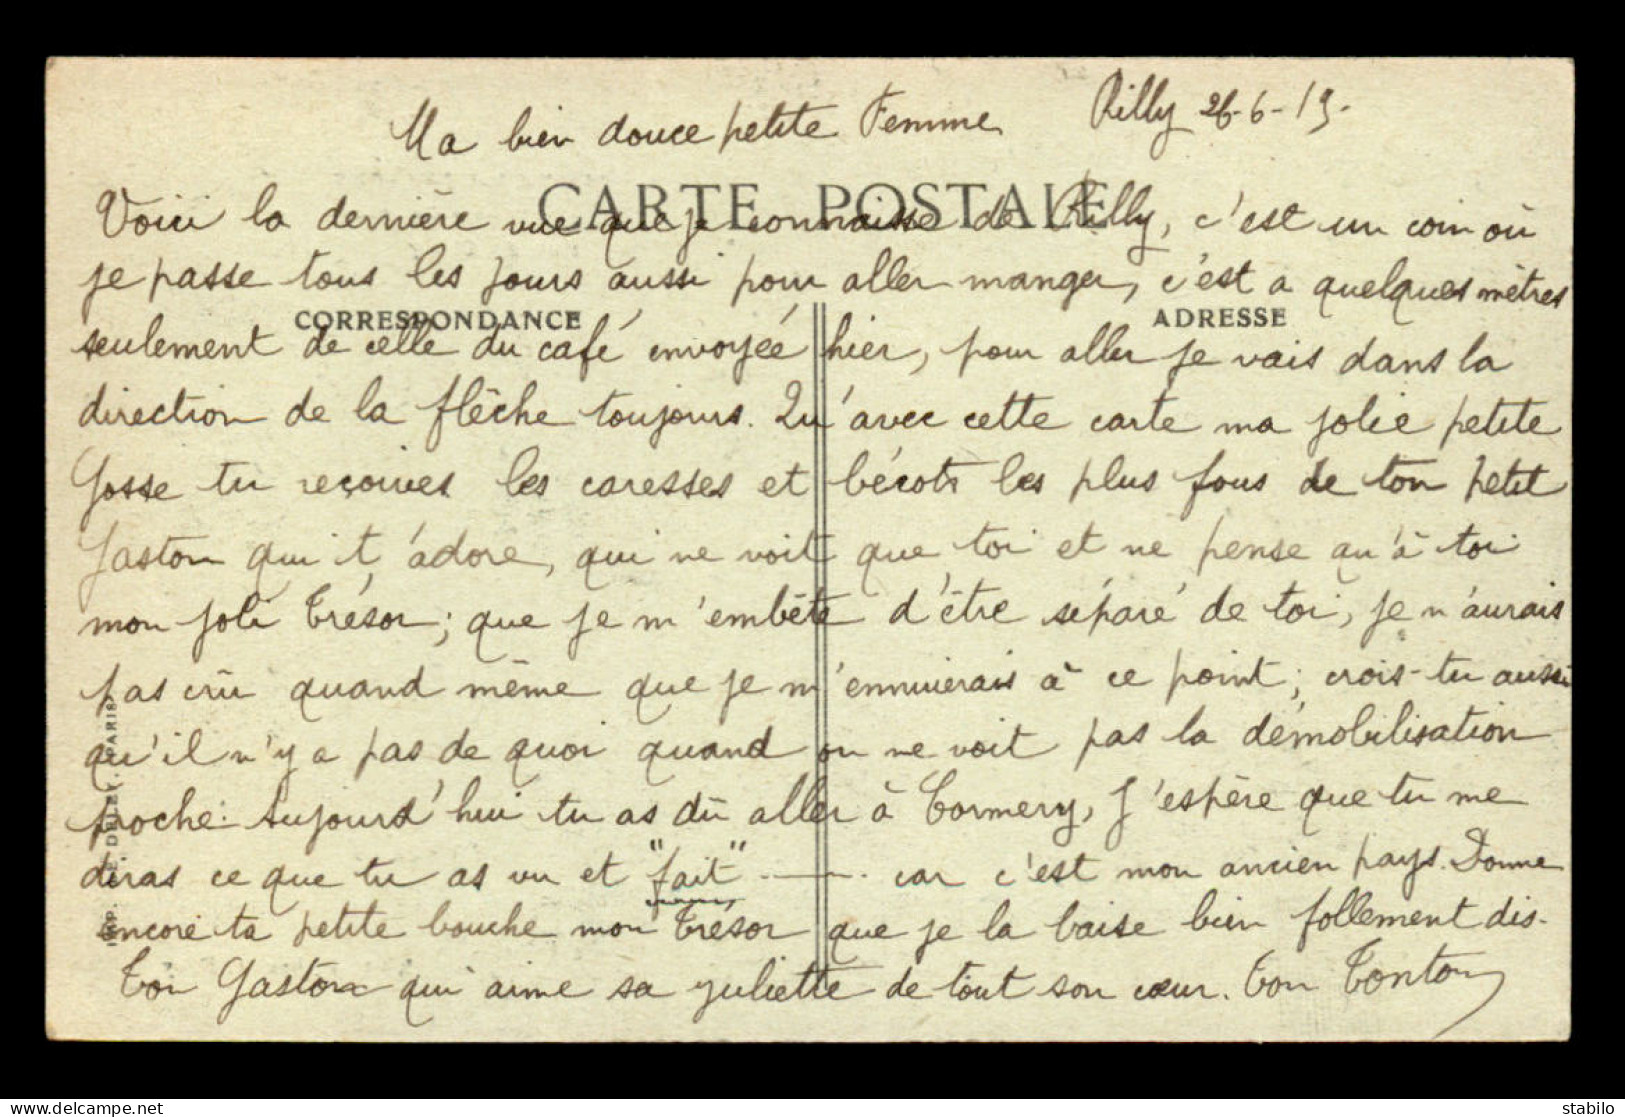 Ma bien douce petite Femme Rilly 26-6-19-
CARTE POSTALE
Voici la dernière vue que je connaisse de Rilly, c'est un coin où
je passe tous les jours aussi pour aller manger, c'est a quelques mètres
CORRESPONDANCE ADRESSE
seulement de celle du café envoyée hier, pour aller je vais dans la
direction de la flêche toujours. Qu'avec cette carte ma jolie petite
Gosse tu reçoives les caresses et bécots les plus fous de ton petit
Gaston qui t'adore, qui ne voit que toi et ne pense qu'à toi
mon joli Trésor; que je m'embête d'être séparé de toi, je n'aurais
pas crû quand même que je m'ennuierais à ce point; crois-tu aussi
qu'il n'y a pas de quoi quand on ne voit pas la démobilisation
proche. Aujourd'hui tu as dû aller à Cormery, j'espère que tu me
diras ce que tu as vu et "fait" . —— . car c'est mon ancien pays. Donne
encore ta petite bouche mon Trésor que je la baise bien follement dis-
Ton Gaston qui aime sa Juliette de tout son cœur. Ton Tonton
IMP. DELEY, PARIS
stabilo